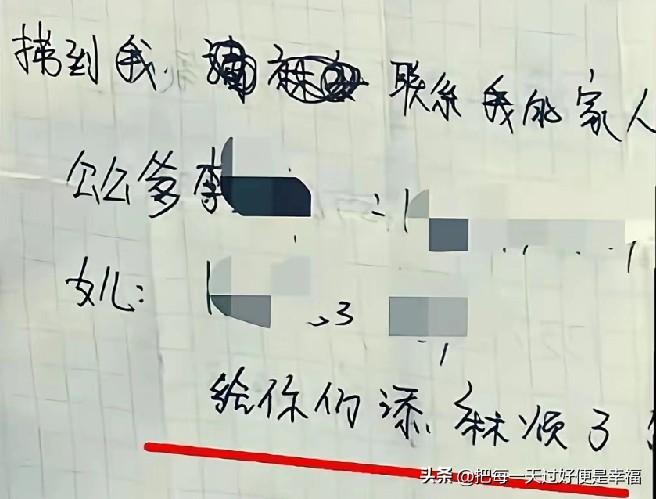 捞到我 联系我的家人
公公爹李
女儿: 3
给你们添麻烦了
头条 @把每一天过好便是幸福